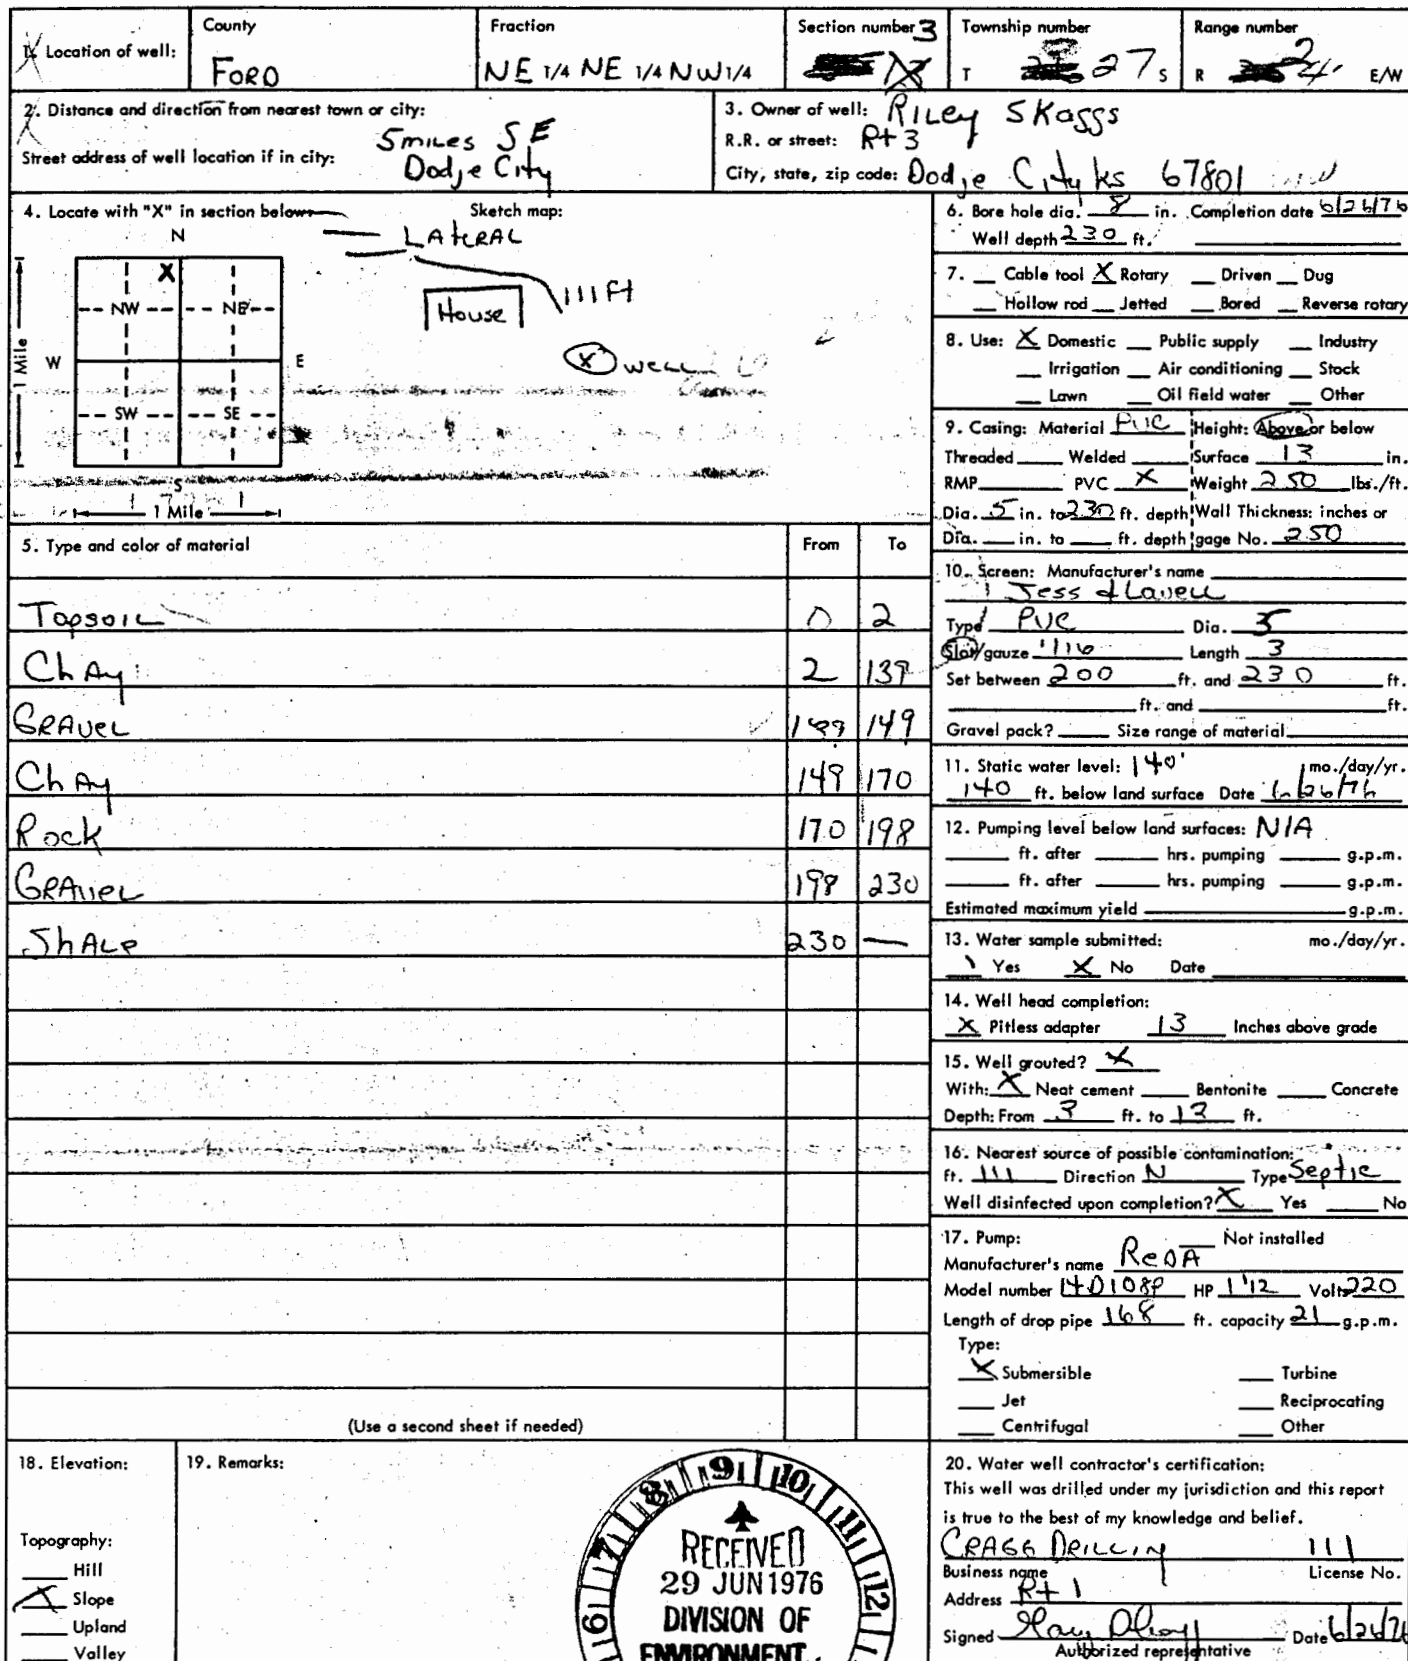 1. Location of well:
County
FORD
Fraction
NE 1/4 NE 1/4 NW 1/4
Section number 3
Township number
T 27 S
Range number
R 24 E/W
2. Distance and direction from nearest town or city:
5miles SE
Street address of well location if in city:
Dodje City
3. Owner of well: RiLey SKaggs
R.R. or street: Rt 3
City, state, zip code: Dodje City ks 67801
4. Locate with "X" in section below
Sketch map:
N
LAteRAL
X
111 Ft
NW NE
House
1 Mile
W E
X well
SW SE
S
1 Mile
5. Type and color of material From To
TopsoiL 0 2
ChAy 2 139
GRAVEL 149
ChAy 149 170
Rock 170 198
GRAVEL 198 230
ShALe 230 —
(Use a second sheet if needed)
6. Bore hole dia. 8 in. Completion date 6/26/76
Well depth 230 ft.
7. Cable tool X Rotary Driven Dug
Hollow rod Jetted Bored Reverse rotary
8. Use: X Domestic Public supply Industry
Irrigation Air conditioning Stock
Lawn Oil field water Other
9. Casing: Material PVC Height: Above or below
Threaded Welded Surface 13 in.
RMP PVC X Weight 2.50 lbs./ft.
Dia. 5 in. to 230 ft. depth Wall Thickness: inches or
Dia. in. to ft. depth gage No. 250
10. Screen: Manufacturer's name
Jess &
Type PVC Dia. 5
Slot/gauze Length 3
Set between 200 ft. and 230 ft.
ft. and ft.
Gravel pack? Size range of material
11. Static water level: 140' mo./day/yr.
140 ft. below land surface Date 6/26/76
12. Pumping level below land surfaces: N/A
ft. after hrs. pumping g.p.m.
ft. after hrs. pumping g.p.m.
Estimated maximum yield g.p.m.
13. Water sample submitted: mo./day/yr.
Yes X No Date
14. Well head completion:
X Pitless adapter 13 Inches above grade
15. Well grouted? X
With: X Neat cement Bentonite Concrete
Depth: From 3 ft. to 13 ft.
16. Nearest source of possible contamination:
ft. 111 Direction N Type Septic
Well disinfected upon completion? X Yes No
17. Pump: Not installed
Manufacturer's name ReDA
Model number HP 1 1/2 Volts 220
Length of drop pipe 168 ft. capacity 21 g.p.m.
Type:
X Submersible Turbine
Jet Reciprocating
Centrifugal Other
18. Elevation:
Topography:
Hill
X Slope
Upland
Valley
19. Remarks:
6 7 8 9 10 11 12
RECEIVED
29 JUN 1976
DIVISION OF
ENVIRONMENT
20. Water well contractor's certification:
This well was drilled under my jurisdiction and this report
is true to the best of my knowledge and belief.
CRAGG DRiLLiNg 111
Business name License No.
Address Rt 1
Signed Date 6/26/76
Authorized representative